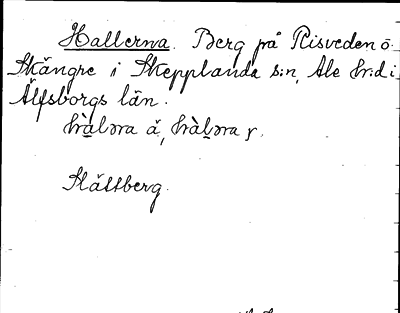 Hallerna. Berg på Risveden ö.
Skångre i Skepplanda s:n, Ale hr:d i
Älfsborgs län.
hàləra å, hàləra f.
Hällberg.